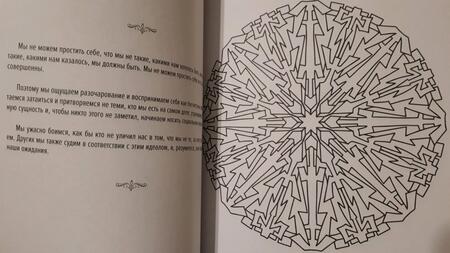 Мы не можем простить себе, что мы не такие, какими нам хотелось бы
такие, какими нам казалось, мы должны быть. Мы не можем простить себе
совершенны.
Поэтому мы ощущаем разочарование и воспринимаем себя как
таемся затаиться и притворяемся не теми, кто мы есть на самом деле,
ную сущность и, чтобы никто этого не заметил, начинаем носить социальные
Мы ужасно боимся, как бы кто не уличил нас в том, что мы не те, за
ем. Других мы также судим в соответствии с этим идеалом, и, разумеется,
наши ожидания.